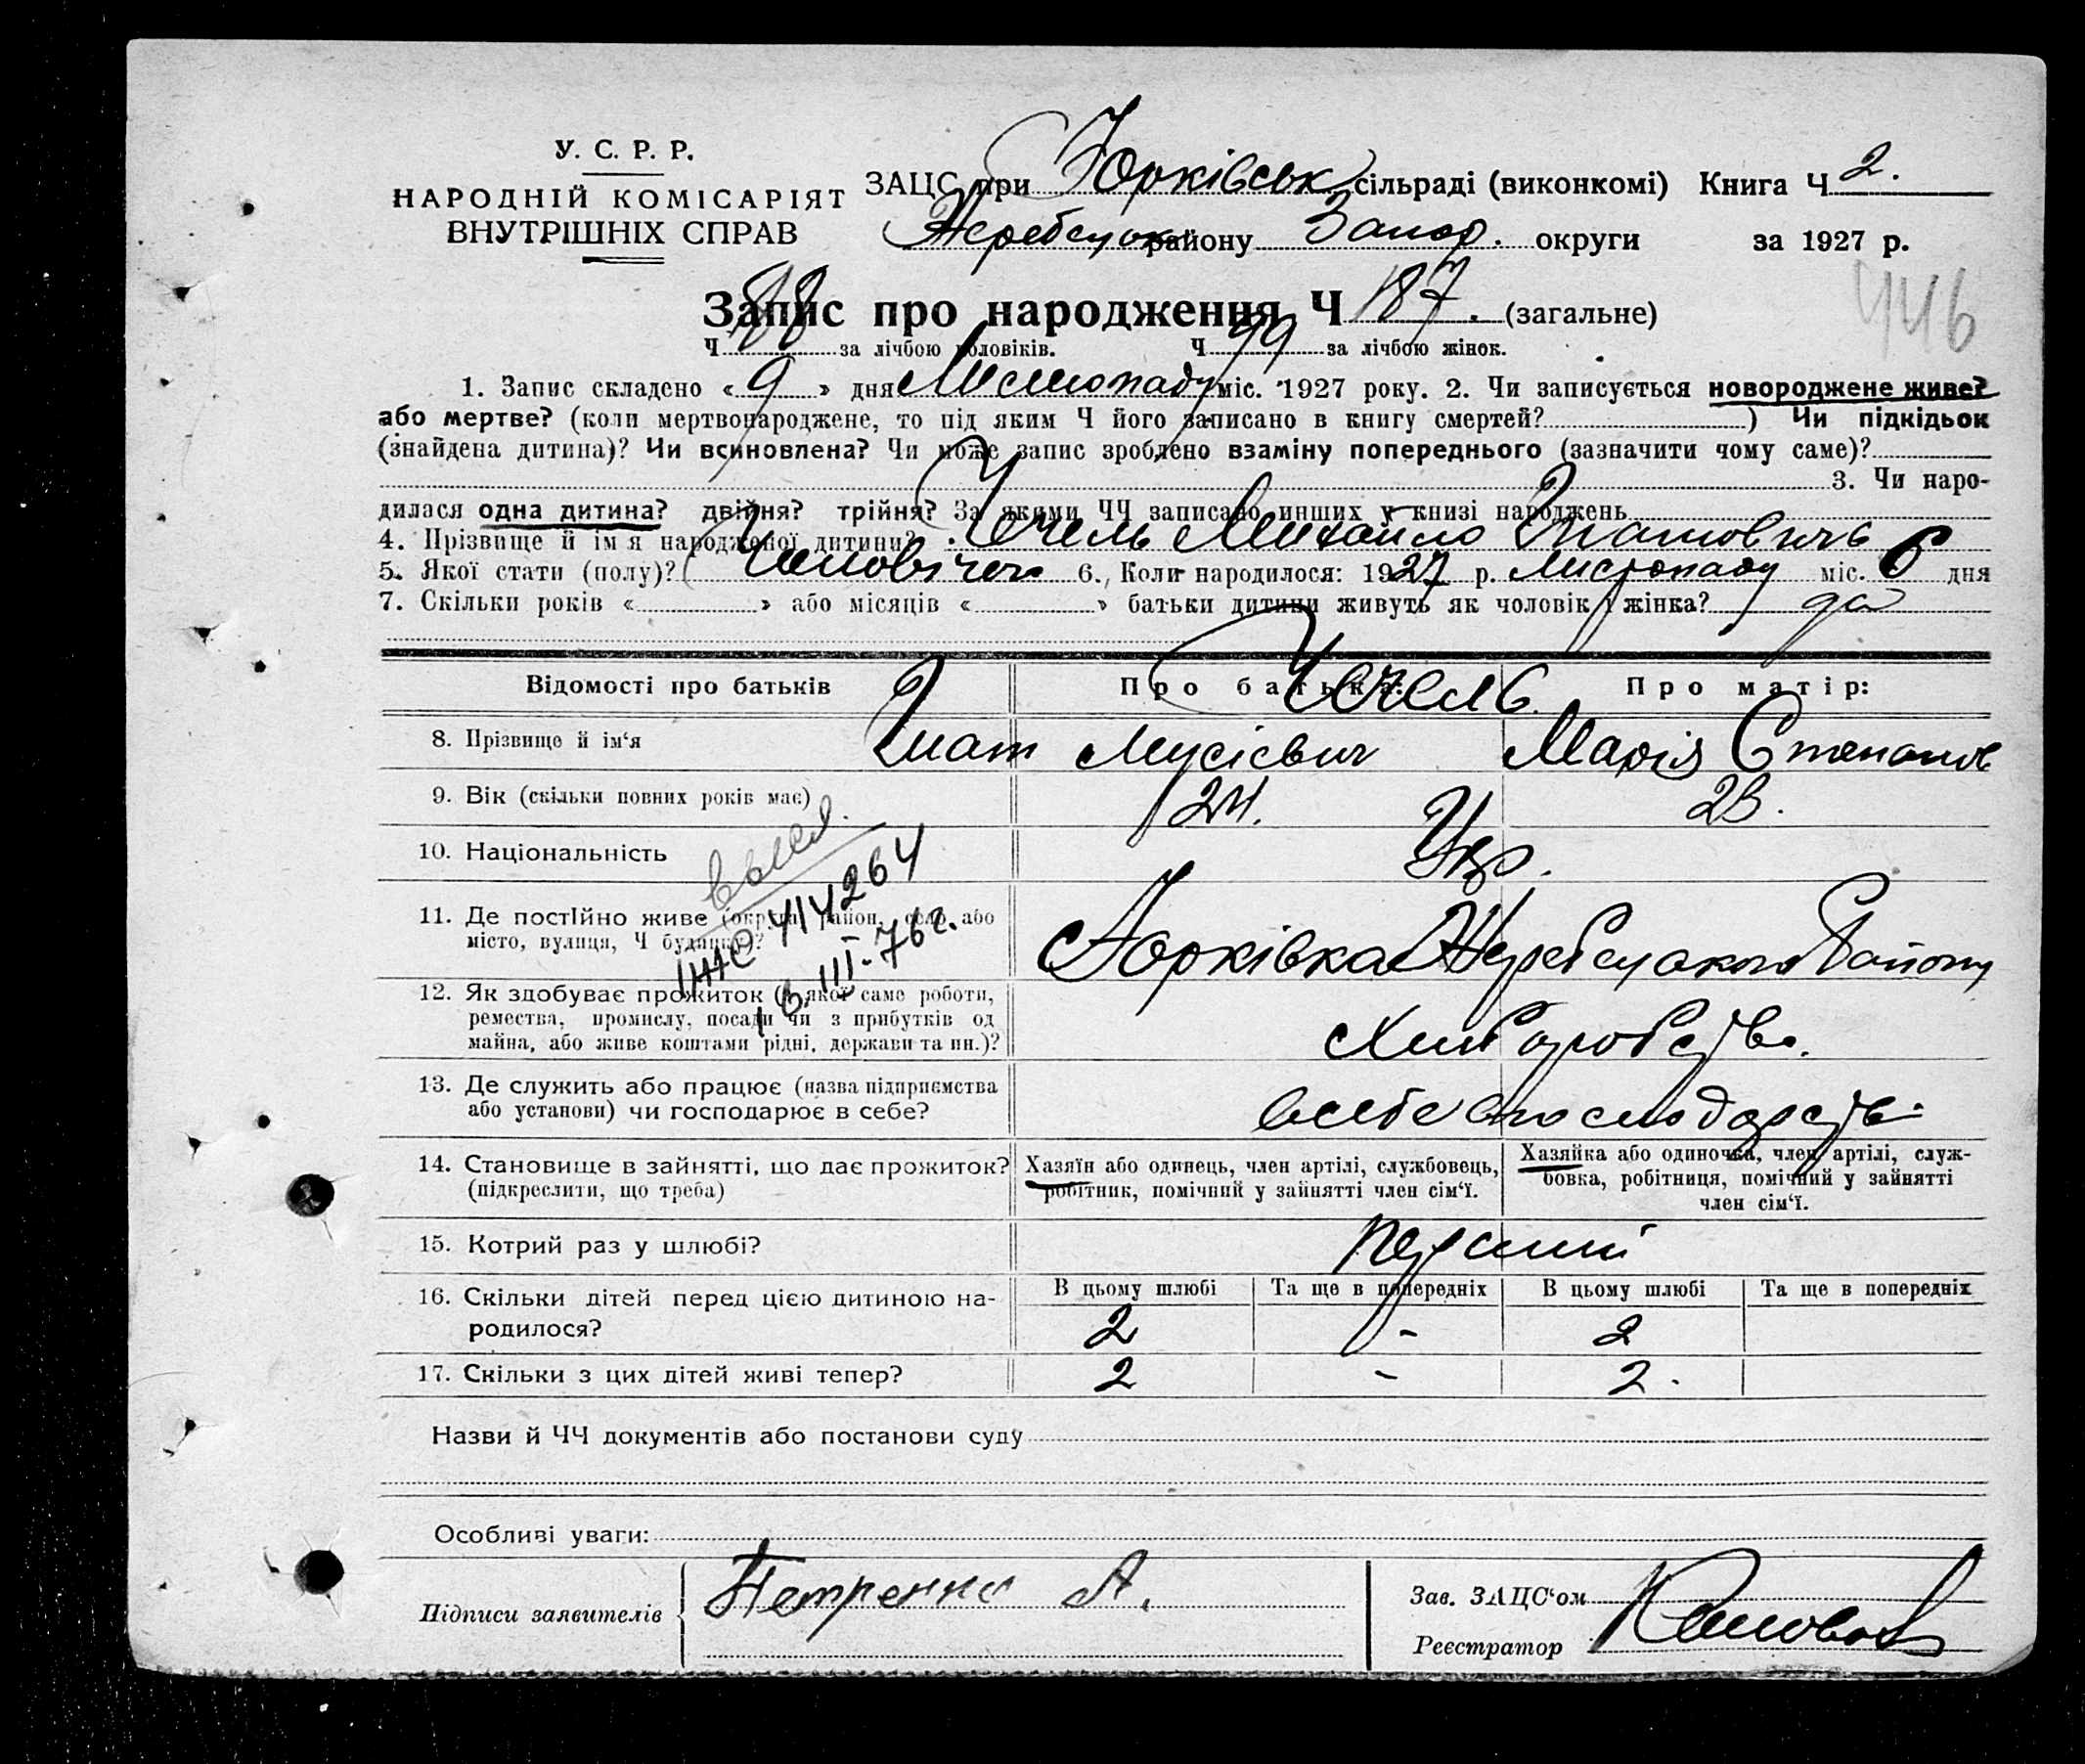 У. С. Р. Р.
НАРОДНІЙ КОМІСАРІЯТ
ВНУТРІШНІХ СПРАВ
ЗАЦС при Юрківськ сільраді (виконкомі) Книга Ч 2.
Жеребецьк району Запор. округи за 1927 р.
446
Запис про народження Ч 187. (загальне)
Ч 88 за лічбою чоловіків. Ч 99 за лічбою жінок.
1. Запис складено « 9 » дня Листопаду міс. 1927 року. 2. Чи записується новороджене живе?
або мертве? (коли мертвонароджене, то під яким Ч його записано в книгу смертей? ) Чи підкідьок
(знайдена дитина)? Чи всиновлена? Чи може запис зроблено взаміну попереднього (зазначити чому саме)?
3. Чи наро-
дилася одна дитина? двійня? трійня? За якими ЧЧ записано инших у книзі народжень
4. Прізвище й ім я народженої дитини? Чечель Михайло Гнатовичь
5. Якої стати (полу)? Чоловічої 6. Коли народилося: 1927 р. Листопаду міс. 6 дня
7. Скільки років « » або місяців « » батьки дитини живуть як чоловік і жінка? да
Відомості про батьків Про батька: Про матір:
Чечель
8. Прізвище й ім‘я Гнат Мусієвич Марія Степанов
9. Вік (скільки повних років має) 24. 23.
10. Національність Укр.
11. Де постійно живе (округа, район, село або
місто, вулиця, Ч будинку)? Юрківка Жеребецького Району
414264
16. III-76г.
12. Як здобуває прожиток (з якої саме роботи,
ремества, промислу, посади чи з прибутків од
майна, або живе коштами рідні, держави та ин.)? Хліборобство.
13. Де служить або працює (назва підприємства
або установи) чи господарює в себе? всебе в господарстві
14. Становище в зайнятті, що дає прожиток?
(підкреслити, що треба)
Хазяїн або одинець, член артілі, службовець,
робітник, помічний у зайнятті член сім‘ї.
Хазяйка або одиночка, член артілі, служ-
бовка, робітниця, помічний у зайнятті
член сім‘ї.
15. Котрий раз у шлюбі? перший
16. Скільки дітей перед цією дитиною на-
родилося?
В цьому шлюбі Та ще в попередніх В цьому шлюбі Та ще в попередніх
2 - 2
17. Скільки з цих дітей живі тепер? 2 - 2.
Назви й ЧЧ документів або постанови суду
Особливі уваги:
Підписи заявителів Петренко А.
Зав. ЗАЦС‘ом
Реєстратор